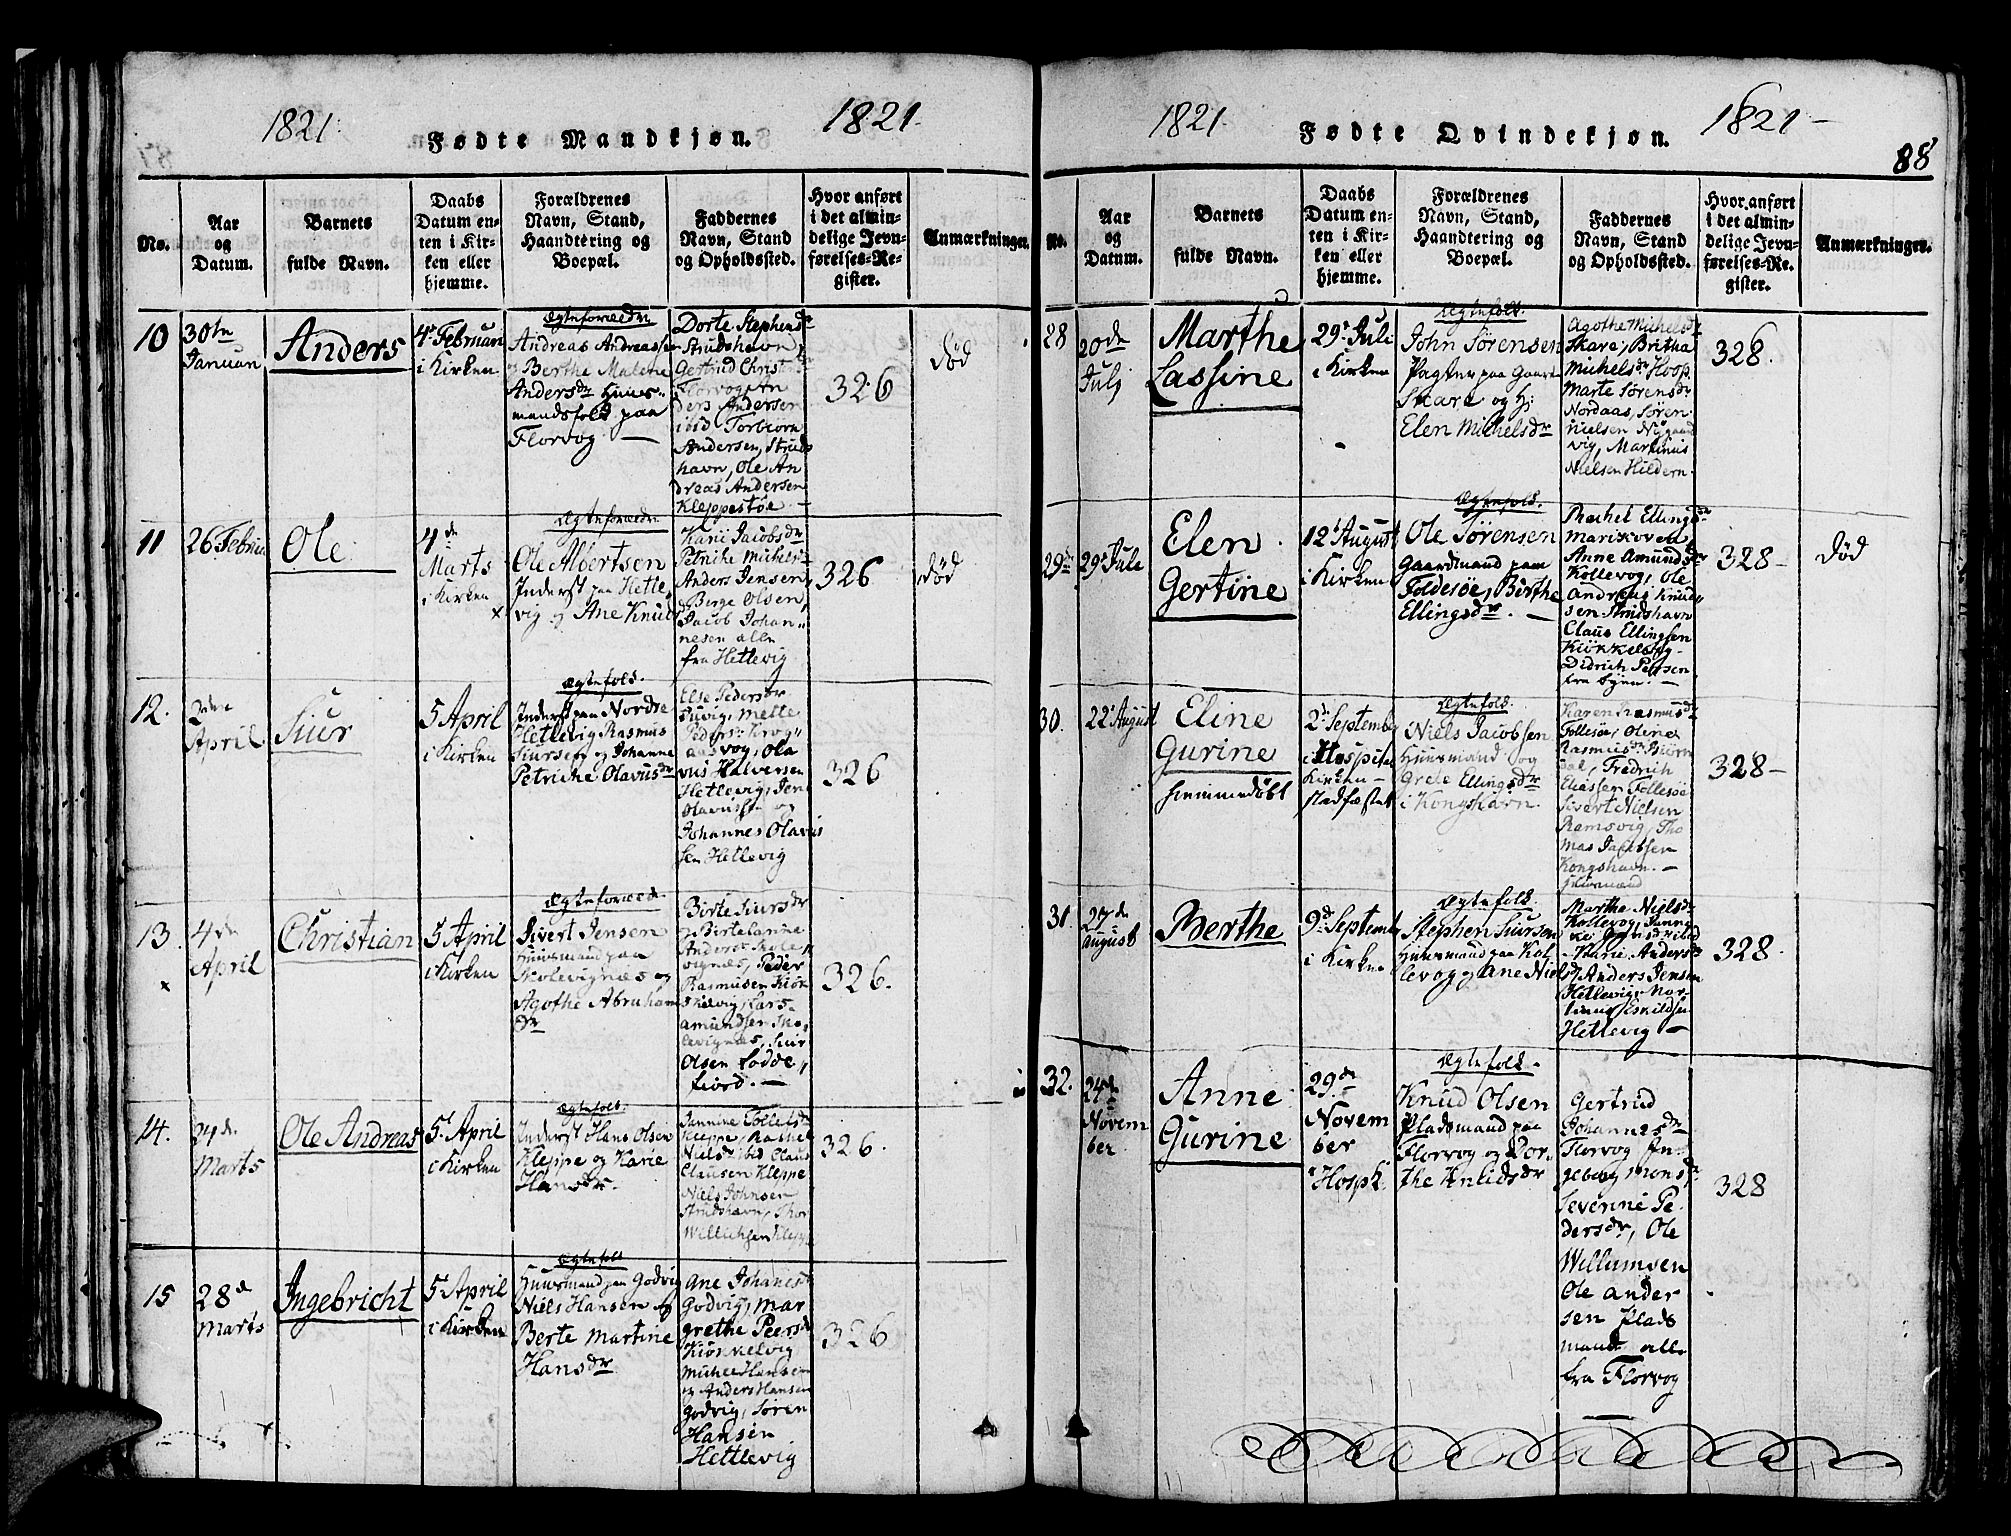 1821.
Fødte Mandkjøn.
1821.
No.
Aar
og
Datum.
Barnets
fulde Navn.
Daabs
Datum en-
ten i Kir-
ken eller
hjemme.
Forældrenes
Navn, Stand,
Haandtering og
Boepæl.
Faddernes
Navn, Stand
og Opholdssted.
Hvor anført
i det almin-
delige Jevn-
førelses-Re-
gister.
Anmærkninger.
10
30te
Januari
Anders
4de Februari
i Kirken
Ægteforældre
Andreas Andreassen
og Berthe Malene
Andersdr Huus-
mandsfolk paa
Florvog
Dorte Stephensdr
Strudshavn,
Gertrud Christ
Florvog An
ders Andersen
ibid Torbiørn
Andersen, Struds
havn, Ole An
dreas Andersen
Kleppestøe
326
død
11
26 Februari
Ole
4de
Marts
i Kirken
Ægteforældre
Ole Albertsen
Inderst paa Hetle-
vig og Ane Knuds
Kari Jacobsdr
Petriche Michels
Anders Jensen,
Børge Olsen,
Jacob Johan-
nesen alle
fra Hetlevig
326
død
12.
2den
April
Siur
5 April
i Kirken
Ægtefolk
Inderst paa Nordre
Hetlevig Rasmus
Siursen og Johanne
Petriche Olavusdr
Else Pedersdr
Mette
Pedersdr
vog, Ola
vus Halversen
Hetlevig, Jens
Olavussen og
Johannes Olavus
sen Hetlevig
326
13.
4de
April
Christian
5 April
i Kirken
Ægteforældre
Sivert Jensen
Huusmand paa
Skolevignæs og
Agothe Abraham
dr
Birte Siursdr
Anders Skole-
vignæs, Peder
Rasmussen Kiør
kelvig, Lars
Amundsen Sko-
levignæs, Siur
Olsen Lodde-
fiord.
326.
14.
24de
Marts
Ole Andreas
5 April
i Kirken
Ægtefolk
Inderst Hans Olsen
Kleppe og Karie
Hansdr
Jannike Tollefsdr
Kleppe, Rachel
Nielsdr ibid Claus
Clausen Kleppe
Niels Johnsen
Strudshavn, Thor
Willichsen Kleppe
326.
15
28de
Marts
Ingebricht
5 April
i Kirken
Ægtefolk
Huusmand paa Godvig
Niels Hansen og
Berte Martine
Hansdr
Ane Johanesdr
Godvig, Mar
grethe Peersdr
Kiørkelvig
Michel Hansen
og Anders Hansen
Godvig, Søren
Hansen
Hettlevig
326
1821.
Fødte Qvindekjøn.
1821-
88
No.
Aar
og
Datum.
Barnets
fulde Navn.
Daabs
Datum en-
ten i Kir-
ken eller
hjemme.
Forældrenes
Navn, Stand,
Haandtering og
Boepæl.
Faddernes
Navn, Stand
og Opholdssted.
Hvor anført
i det almin-
delige Jevn-
førelses-Re-
gister.
Anmærkninger.
28
20de
Julj
Marthe
Lassine
29de Juli
i Kirken
Ægtefolk.
John Sørensen
Pagter paa Gaard
Skare og H:
Elen Michelsdr
Agothe Michelsdr
Skare, Britha
Michelsdr Hosp.
Marte Sørensdr
Nordaas, Søren
Nielsen Nygaard
vig, Martinus
Nielsen Hildern.
328.
29de
29de Jule
Elen
Gertine
12te August
i Kirken
Ægtefolk.
Ole Sørensen
Gaardmand paa
Foldesøe, Birthe
Ellingsdr.
Rachel Ellingsdr
Marikoven,
Anne Amundsdr
Kollevog, Ole
Andreas Knud-
sen Strudshavn
Claus Ellingsen
Kiørkelvig
Didrich Peersen
fra Byen.
328-
død
30.
22de August
Eline
Gurine
hiemmedøbt
2de September
i Hospital
Kirken
stadfæstet
Ægtefolk.
Niels Jacobsen
Huusmand og
Grete Ellingsdr
i Kongshavn.
Karen Rasmusdr
Follesøe, Olene
Rasmusdr Biørn
dal, Fredrich
Eliassen Follesøe
Sivert Nielsen
Ramsvig, Tho
mas Jacobsen
Kongshavn.
Huusmænd
328-
31.
27de
August
Berthe
9de September
i Kirken
Ægtefolk
Stephen Siursen
Huusmand paa Kol
levog og Ane Nielsd
Marthe Nielsdr
Kollevog, Janni
ke ibid
Karie Andersdr
Anders Jensen
Hetlevig, Mor-
Eskildsen
Hetlevig
328.
32.
24de
Novem
ber
Anne
Gurine
29de
Novem
ber
i Hosp K.
Ægtefolk
Knud Olsen
Pladsmand paa
Florvog og Dor-
the Anlidsdr
Gertrud
Johannesdr
Florvog In-
geborg Monsdr
Severine Pe-
dersdr, Ole
Willumsen
Ole Ander
sen Plads
mænd alle
fra Florvog
328